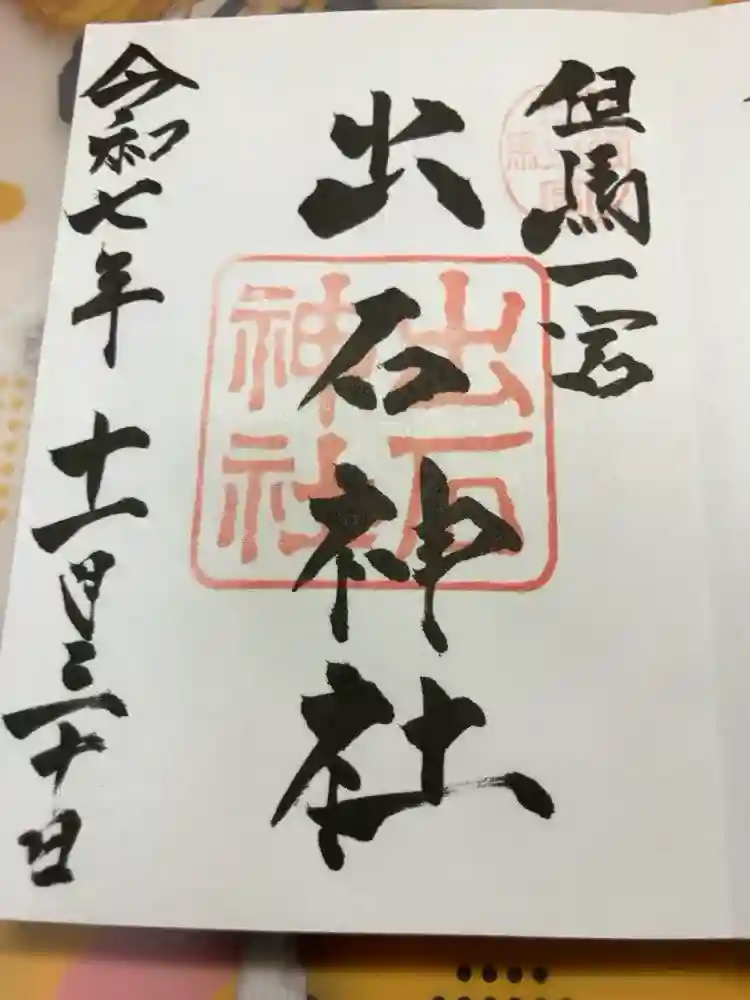 但馬一宮
出石神社
出石
神社
令和七年十一月三十日